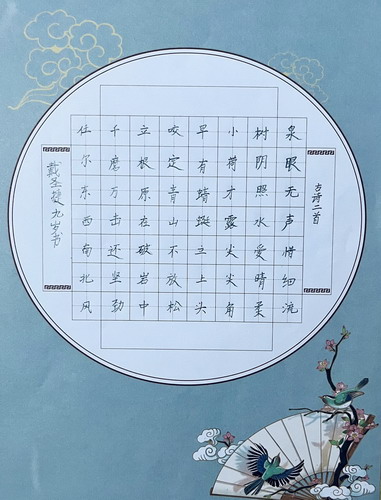 古诗二首
泉眼无声惜细流
树阴照水爱晴柔
小荷才露尖尖角
早有蜻蜓立上头
咬定青山不放松
立根原在破岩中
千磨万击还坚劲
任尔东西南北风
戴圣捷九岁书